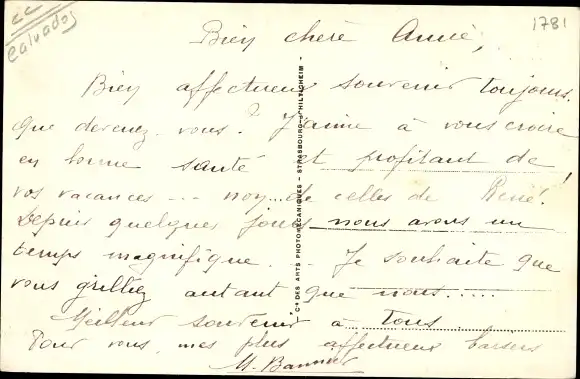 cc
Calvados
1781
Bien chère Amie,
Bien affectueux souvenir toujours.
Que devenez-vous? J'aime à vous croire
en bonne santé et profitant de
vos vacances --- non de celles de René!
Depuis quelques jours nous avons un
temps magnifique... Je souhaite que
vous grilliez autant que nous.....
Meilleur souvenir à tous.
Pour vous, mes plus affectueux baisers
M.
Cie DES ARTS PHOTOMÉCANIQUES - STRASBOURG-SCHILTIGHEIM -